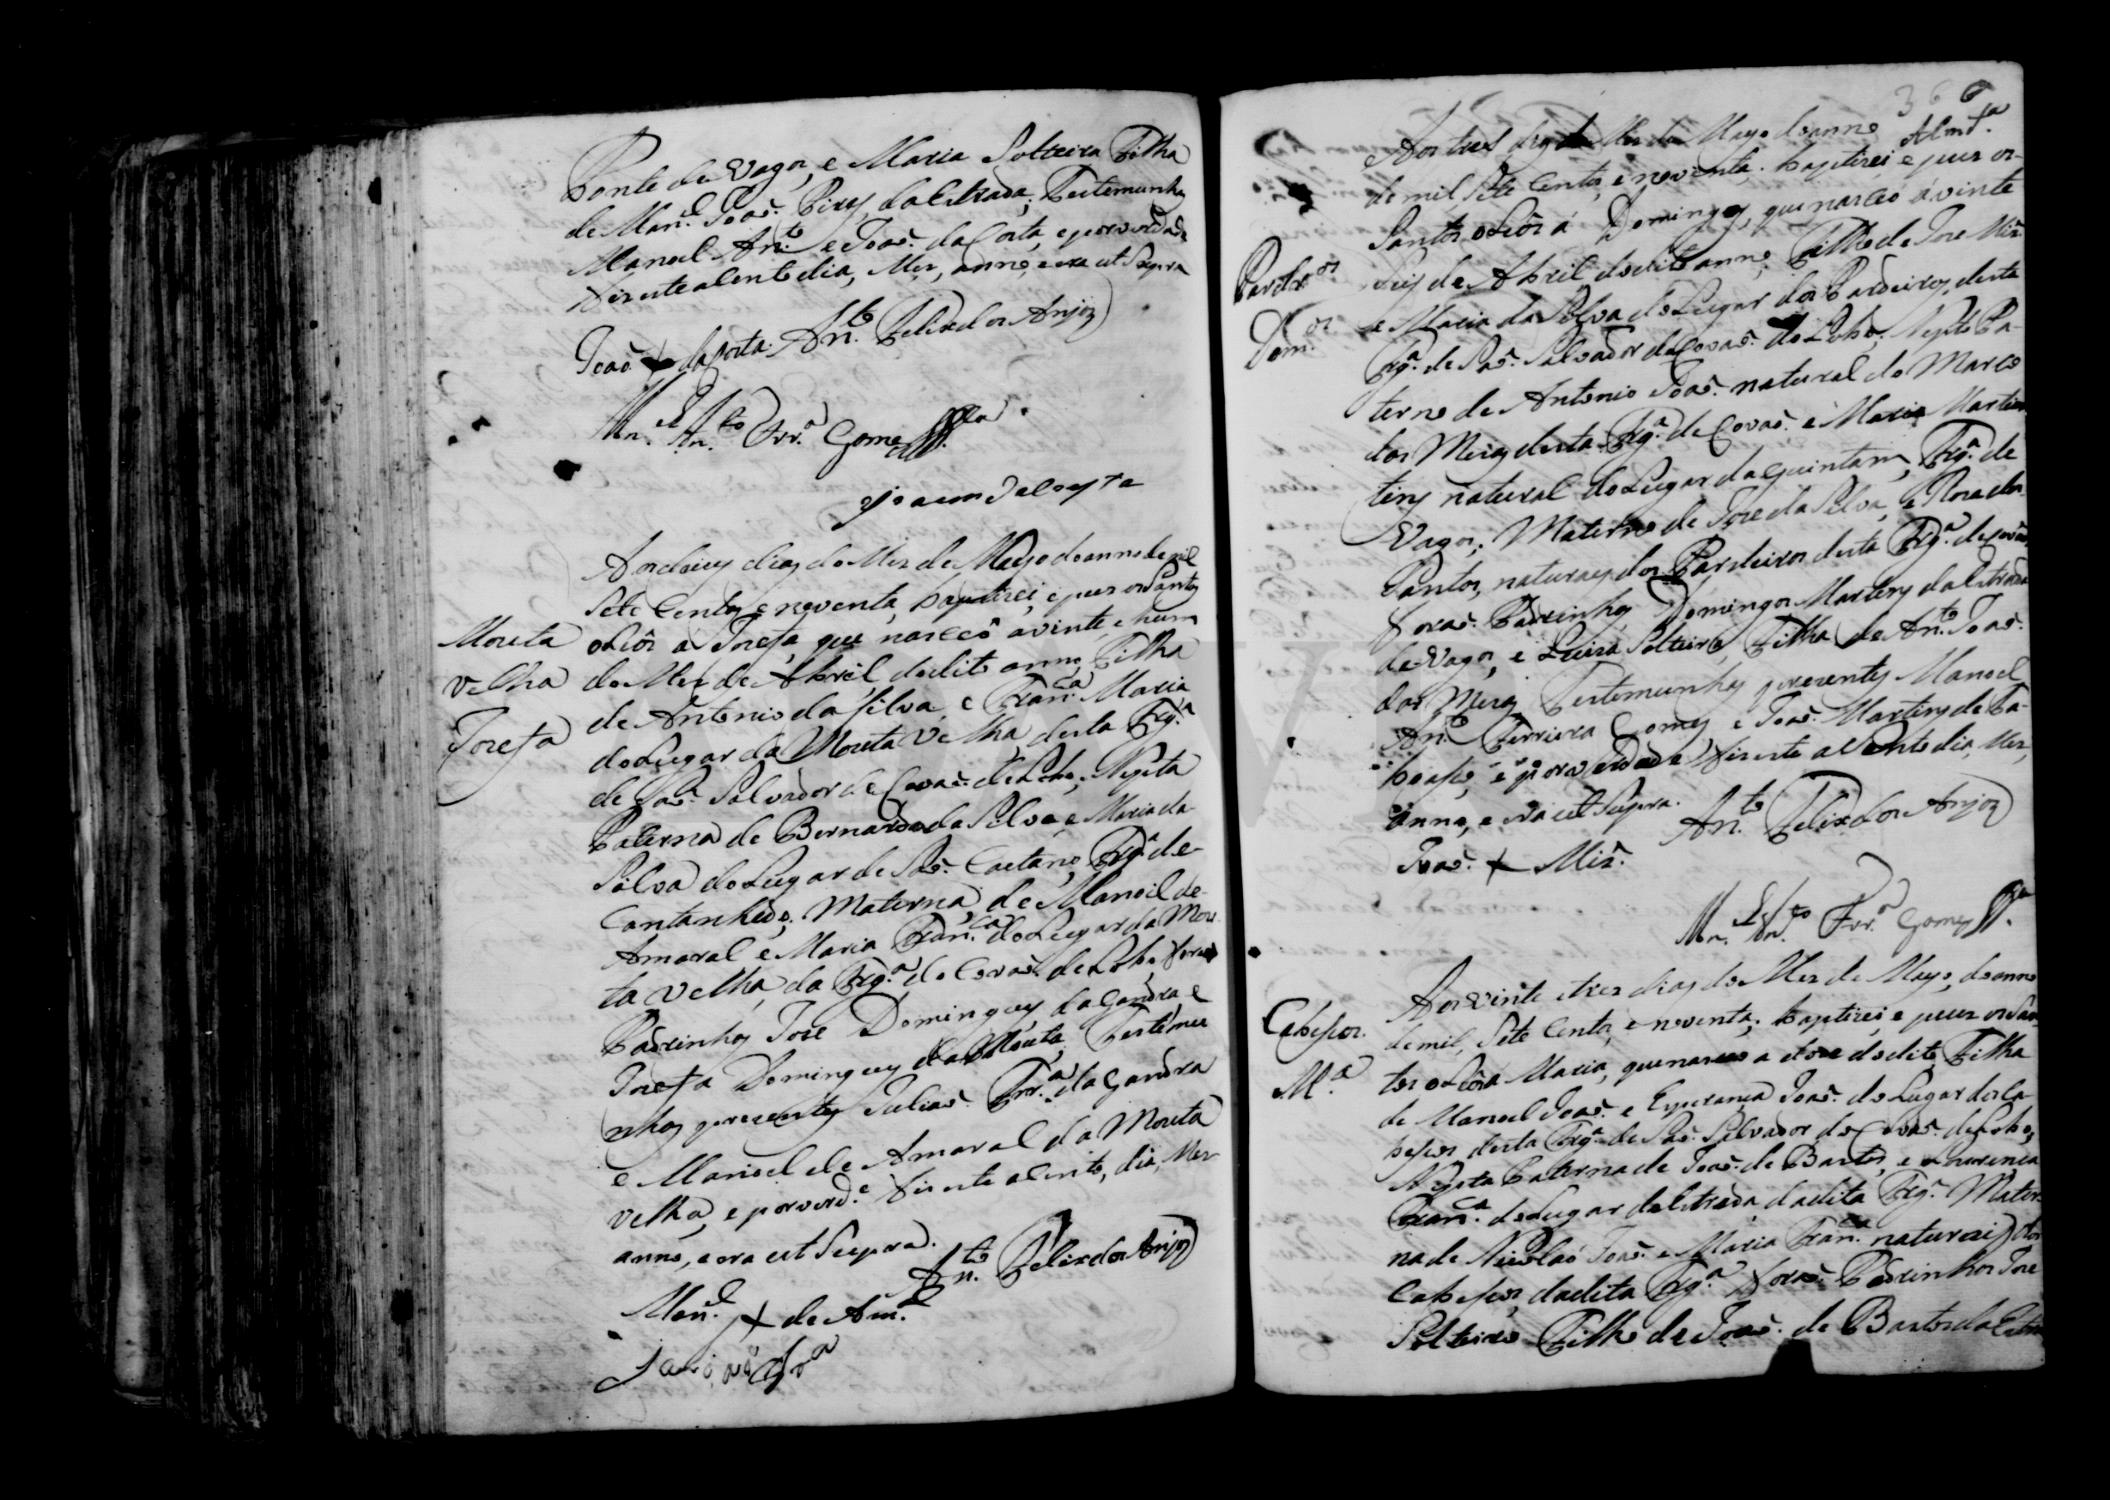 Ponte de Vagos, e Maria Solteira Filha
de Man.el Joaõ Pires da Estrada; Testemunhas
Manoel An.to e Joaõ da Costa, e por verdade
fiz este asento dia, Mes, anno, e era ut Supra
An.to Felix dos Anjos
Joaõ + da Costa
M.el An.to Frr.a Gomes
Aos des dias do Mes de Mayo do anno de mil
Sete Centos e noventa, baptizei, e puz os Santos
oleos a Josefa, que nasceo a vinte e hum
do Mes de Abril do dito anno, Filha
de Antonio da Silva, e Fran.ca Maria
do Lugar da Mouta Velha desta Frg.a
de Saõ Salvador de Covaõ de Lobo; Nepta
Paterna de Bernardo da Silva e Maria da
Silva do Lugar de Saõ Caetano, Frg.a de
Cantanhede; Materna de Manoel de
Amaral e Maria Fran.ca do Lugar da Mou-
ta velha, da Frg.a de Covaõ de Lobo foraõ
Padrinhos José Domingues da Gandra, e
Josefa Domingues da Mouta, Testemu
nhas prezentes Juliaõ Frr.a da Gandra
e Manoel de Amaral da Mouta
velha, e por verd.e fiz este asento, dia, Mes
anno, e era ut Supra.
An.to Felix dos Anjos
Man.el + de Am.al
Mouta
velha
Josefa
366
Alm.da
Aos tres dias do Mes de Mayo do anno
de mil Sete Centos, e noventa, baptizei, e puz os
Santos oleos á Domingos, que nasceo á vinte
Seis de Abril do dito anno, Filho de Jose Miz
e Maria da Silva do Lugar dos Pardeiros, desta
Frg.a de Saõ Salvador de Covaõ do Lobo. Nepto Pa-
terno de Antonio Joaõ natural do Marco
dos Meiz desta Frg.a de Covaõ e Maria Martins
natural do Lugar da Quintam, Frg.a de
Vagos; Materno de Jose da Silva, e Rosa dos
Santos, naturaes dos Pardeiros desta Frg.a de Covaõ
foraõ Padrinhos Domingos Martins da Estrada
de Vagos, e Luiza Solteira, Filha de An.to Joaõ
dos Meiz Testemunhas prezentes Manoel
An.to Ferreira Gomes e Joaõ Martins de Ca-
beços, e por verdade fiz este asento dia, Mes,
anno, e era ut Supra.
An.to Felix dos Anjos
Joaõ + Miz.
M.el An.to Frr.a Gomes
Pardr.os
Dom.os
Aos vinte e tres dias do Mes de Mayo, do anno
de mil, Sete Centos, e noventa, baptizei, e puz os San-
tos oleos a Maria, que nasceo a doze do dito, Filha
de Manoel Joaõ e Esperança Joaõ do Lugar dos Ca-
beços desta Frg.a de Saõ Salvador de Covaõ de Lobo,
Nepta Paterna de Joaõ de Bastos, e Lourença
Fran.ca do Lugar da Estrada da dita Frg.a Mater-
na de Nicolaó Joaõ e Maria Fran.ca naturais dos
Cabeços, da dita Frg.a foraõ Padrinhos Jose
Solteiro Filho de Joaõ de Bastos da Estra
Cabeços.
M.a